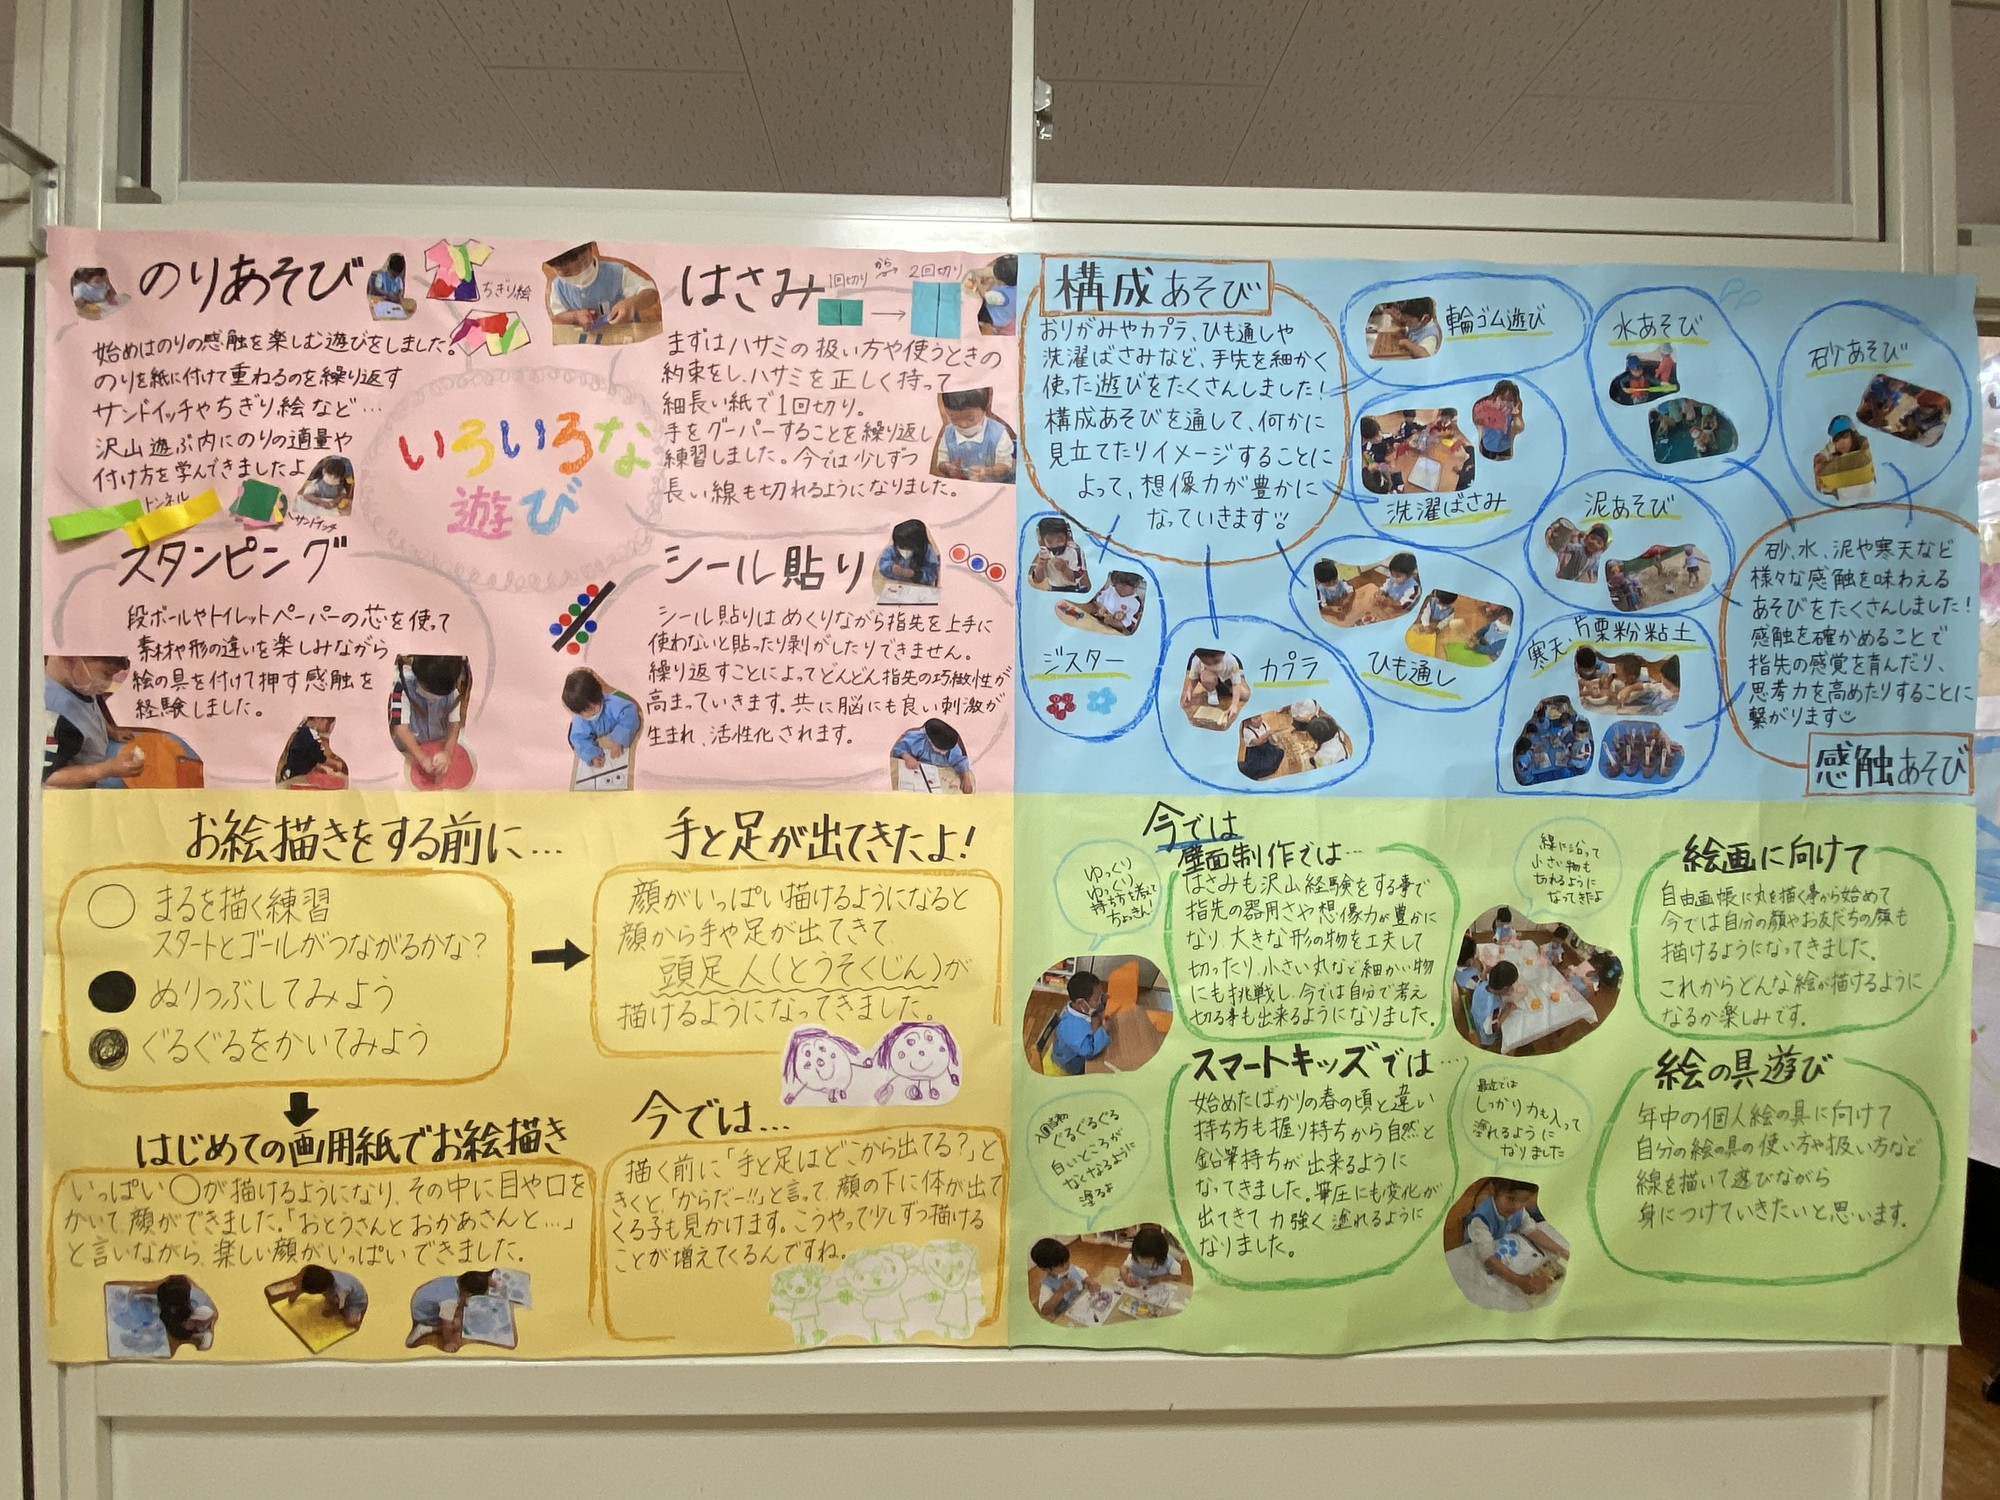 のりあそび
ちぎり絵
始めはのりの感触を楽しむ遊びをしました。
のりを紙に付けて重ねるのを繰り返す
サンドイッチやちぎり絵など…
沢山遊ぶ内にのりの適量や
付け方を学んできましたよ
トンネル
サンドイッチ
はさみ
1回切り
から
2回切り
まずはハサミの扱い方や使うときの
約束をし、ハサミを正しく持って
細長い紙で1回切り。
手をグーパーすることを繰り返し
練習しました。今では少しずつ
長い線も切れるようになりました。
いろいろな
遊び
スタンピング
段ボールやトイレットペーパーの芯を使って
素材や形の違いを楽しみながら
絵の具を付けて押す感触を
経験しました。
シール貼り
シール貼りはめくりながら指先を上手に
使わないと貼ったり剥がしたりできません。
繰り返すことによってどんどん指先の巧緻性が
高まっていきます。共に脳にも良い刺激が
生まれ、活性化されます。
構成あそび
おりがみやカプラ、ひも通しや
洗濯ばさみなど、手先を細かく
使った遊びをたくさんしました!
構成あそびを通して、何かに
見立てたりイメージすることに
よって、想像力が豊かに
なっていきます
輪ゴム遊び
洗濯ばさみ
ジスター
カプラ
ひも通し
水あそび
砂あそび
泥あそび
寒天、片栗粉粘土
砂、水、泥や寒天など
様々な感触を味わえる
あそびをたくさんしました!
感触を確かめることで
指先の感覚を育んだり、
思考力を高めたりすることに
繋がります
感触あそび
お絵描きをする前に…
まるを描く練習
スタートとゴールがつながるかな?
ぬりつぶしてみよう
ぐるぐるをかいてみよう
はじめての画用紙でお絵描き
いっぱい〇が描けるようになり、その中に目や口を
かいて顔ができました。「おとうさんとおかあさんと…」
と言いながら、楽しい顔がいっぱいできました。
手と足が出てきたよ!
顔がいっぱい描けるようになると
顔から手や足が出てきて
頭足人(とうそくじん)が
描けるようになってきました。
今では…
描く前に「手と足はどこから出てる?」と
きくと、「からだー!!」と言って、顔の下に体が出て
くる子も見かけます。こうやって少しずつ描ける
ことが増えてくるんですね。
今では
壁面制作では…
はさみも沢山経験をする事で
指先の器用さや想像力が豊かに
なり、大きな形の物を工夫して
切ったり、小さい丸など細かい物
にも挑戦し、今では自分で考え
切る事も出来るようになりました。
ゆっくり
ゆっくり
持ち方を考えて
ちょっきん!
線に沿って
小さい物も
切れるように
なってきたよ
スマートキッズでは…
始めたばかりの春の頃と違い
持ち方も握り持ちから自然と
鉛筆持ちが出来るように
なってきました。筆圧にも変化が
出てきて力強く塗れるように
なりました。
入園当初
ぐるぐるぐる
白いところが
なくなるように
塗るよ
最近では
しっかり力も入って
塗れるように
なりました
絵画に向けて
自由画帳に丸を描く事から始めて
今では自分の顔やお友だちの顔も
描けるようになってきました。
これからどんな絵が描けるように
なるか楽しみです。
絵の具遊び
年中の個人絵の具に向けて
自分の絵の具の使い方や扱い方など
線を描いて遊びながら
身につけていきたいと思います。